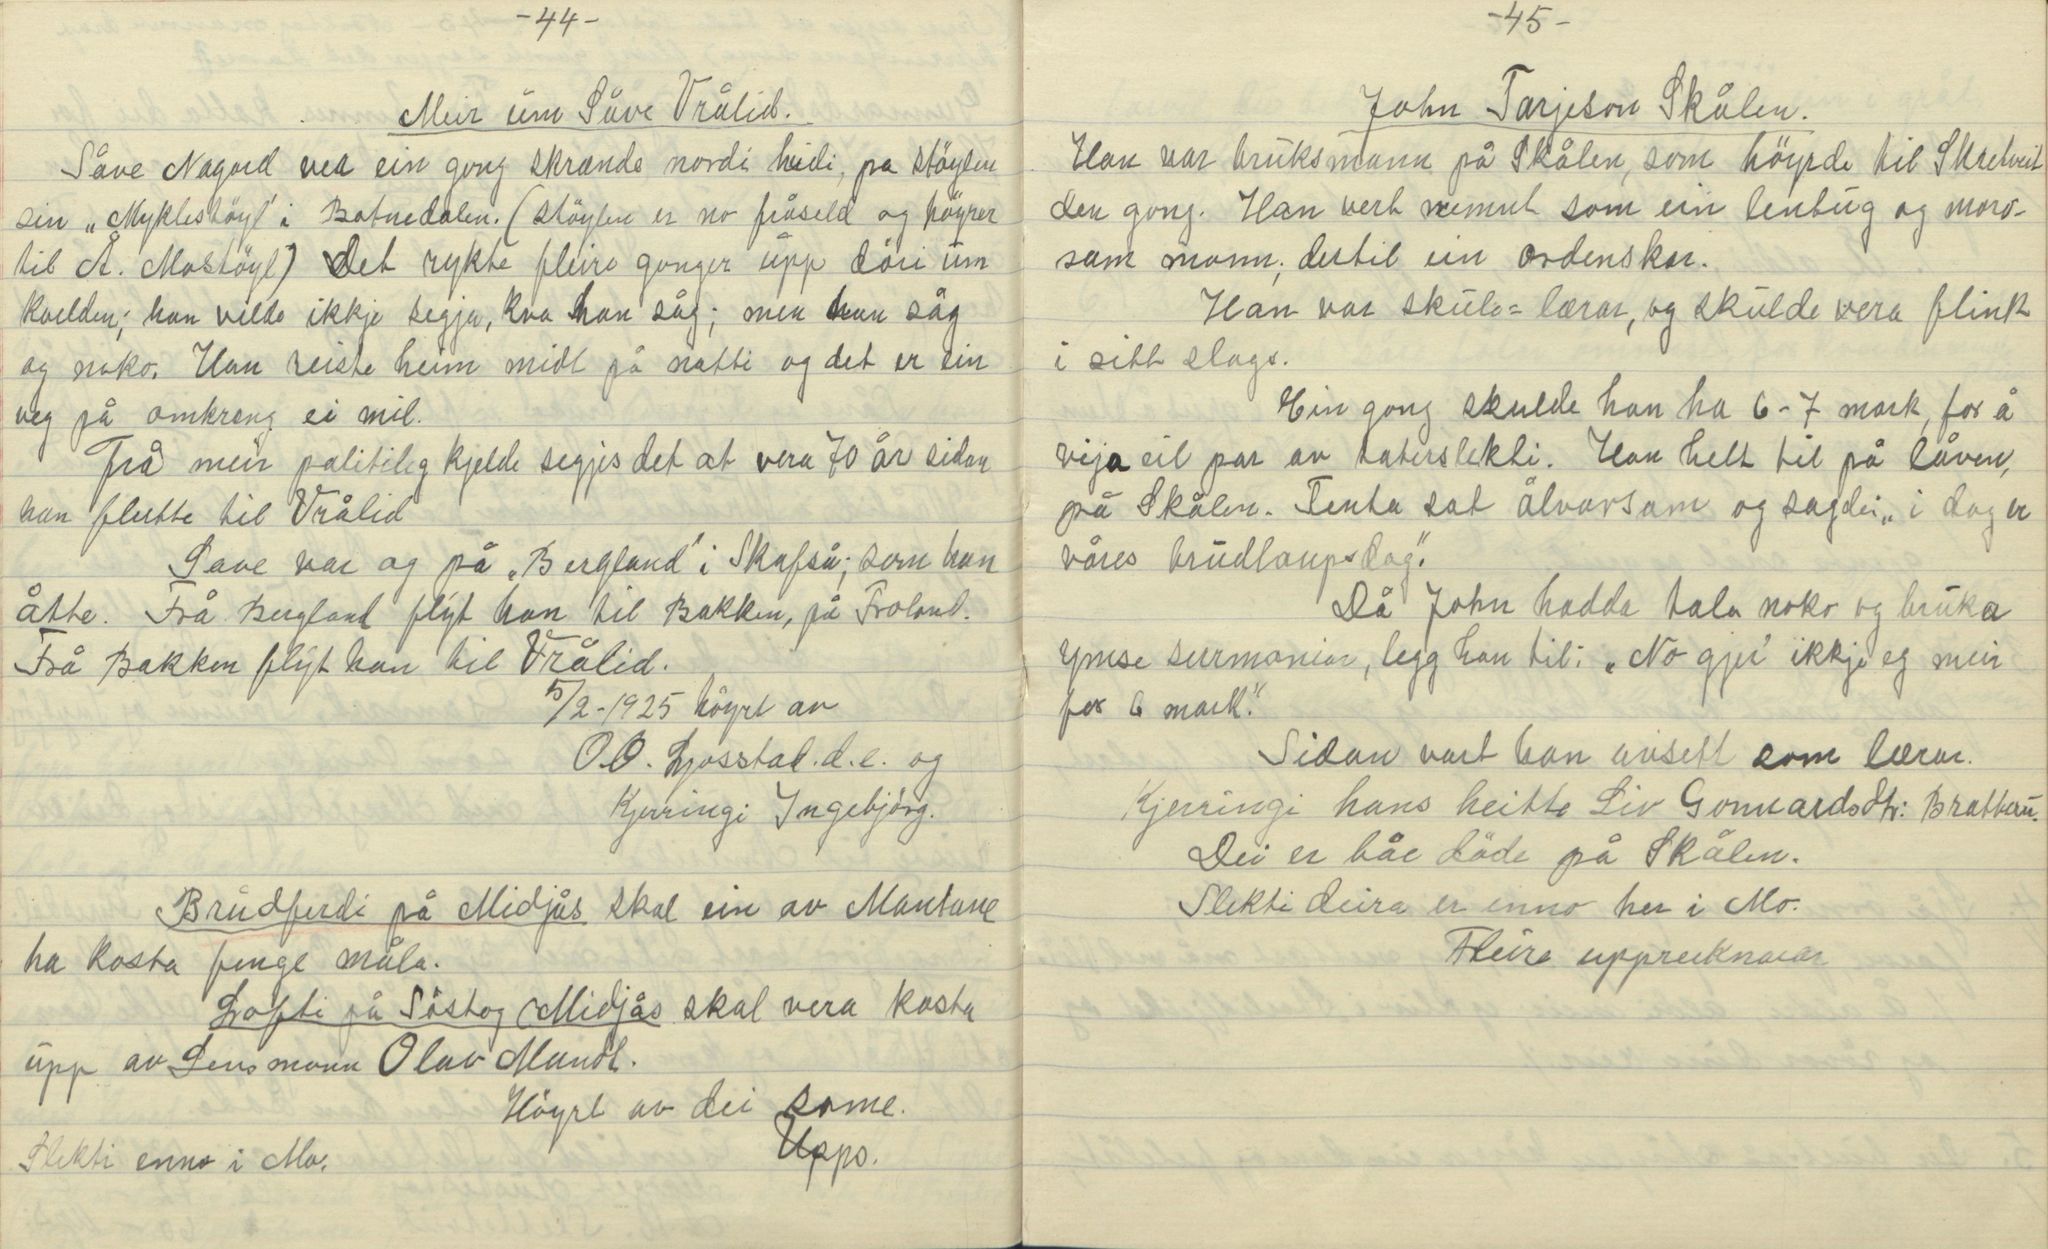 -44-
Meir um Såve Vrålid.
Såve Nagard vea ein gong skrænde nordi heidi, pa stöylen
sin „Myklestöyl" i Botnedalen. (stöylen er no fråseld og höyrer
til Å. Mostöyl) Det rykte fleire gonger upp döri um
kvelden; han vilde ikkje segja, kva han såg; men han såg
og noko. Han reiste heim midt på natti og det er ein
veg på omkreng ei mil.
Frå meir palitileg kjelde segjes det at vera 70 år sidan
han flutte til Vrålid
Save var og på „Bergland" i Skafså; som han
åtte. Frå Bergland flýt han til Bakken, på Froland.
Frå Bakken flýt han til Vrålid.
5/2-1925 höyrt av
O.O. Ljosstad.d.e. og
Kjerringi Ingebjörg.
Brudferdi på Midjås skal ein av Mantane
ha kosta fenge måla.
Lofti på Söstog Midjås skal vera kosta
upp av Lensmann Olav Mandt.
Höyrt av dei same.
Upps.
Slekti enno i Mo.
-45-
John Tarjeson Skålen.
Han var bruksmann på Skålen, som höyrde til Skretveit
den gong. Han vert nemnt som ein lentug og moro-
sam mann; dertil ein ordenskar.
Han var skule=lærar, og skulde vera flink
i sitt slags.
Ein gong skulde han ha 6-7 mark, for å
vija eit par av taterslekti. Han helt til på låven,
på Skålen. Jenta sat ålvorsam og sagde: „i dag er
våres brudlaupsdag".
Då John hadda tala noko og bruka
ymse surmoniar, legg han til: „No gjer' ikkje eg meir
for 6 mark."
Sidan vart han avsett som lærar.
Kjerringi hans heitte Liv Gonnardsdtr: Brattun.
Dei er båe döde på Skålen.
Slekti deira er enno her i Mo.
Fleire uppreiknaar